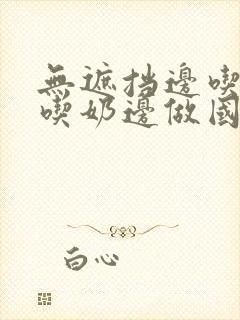 無遮挡邊喫
喫奶邊做國
白心